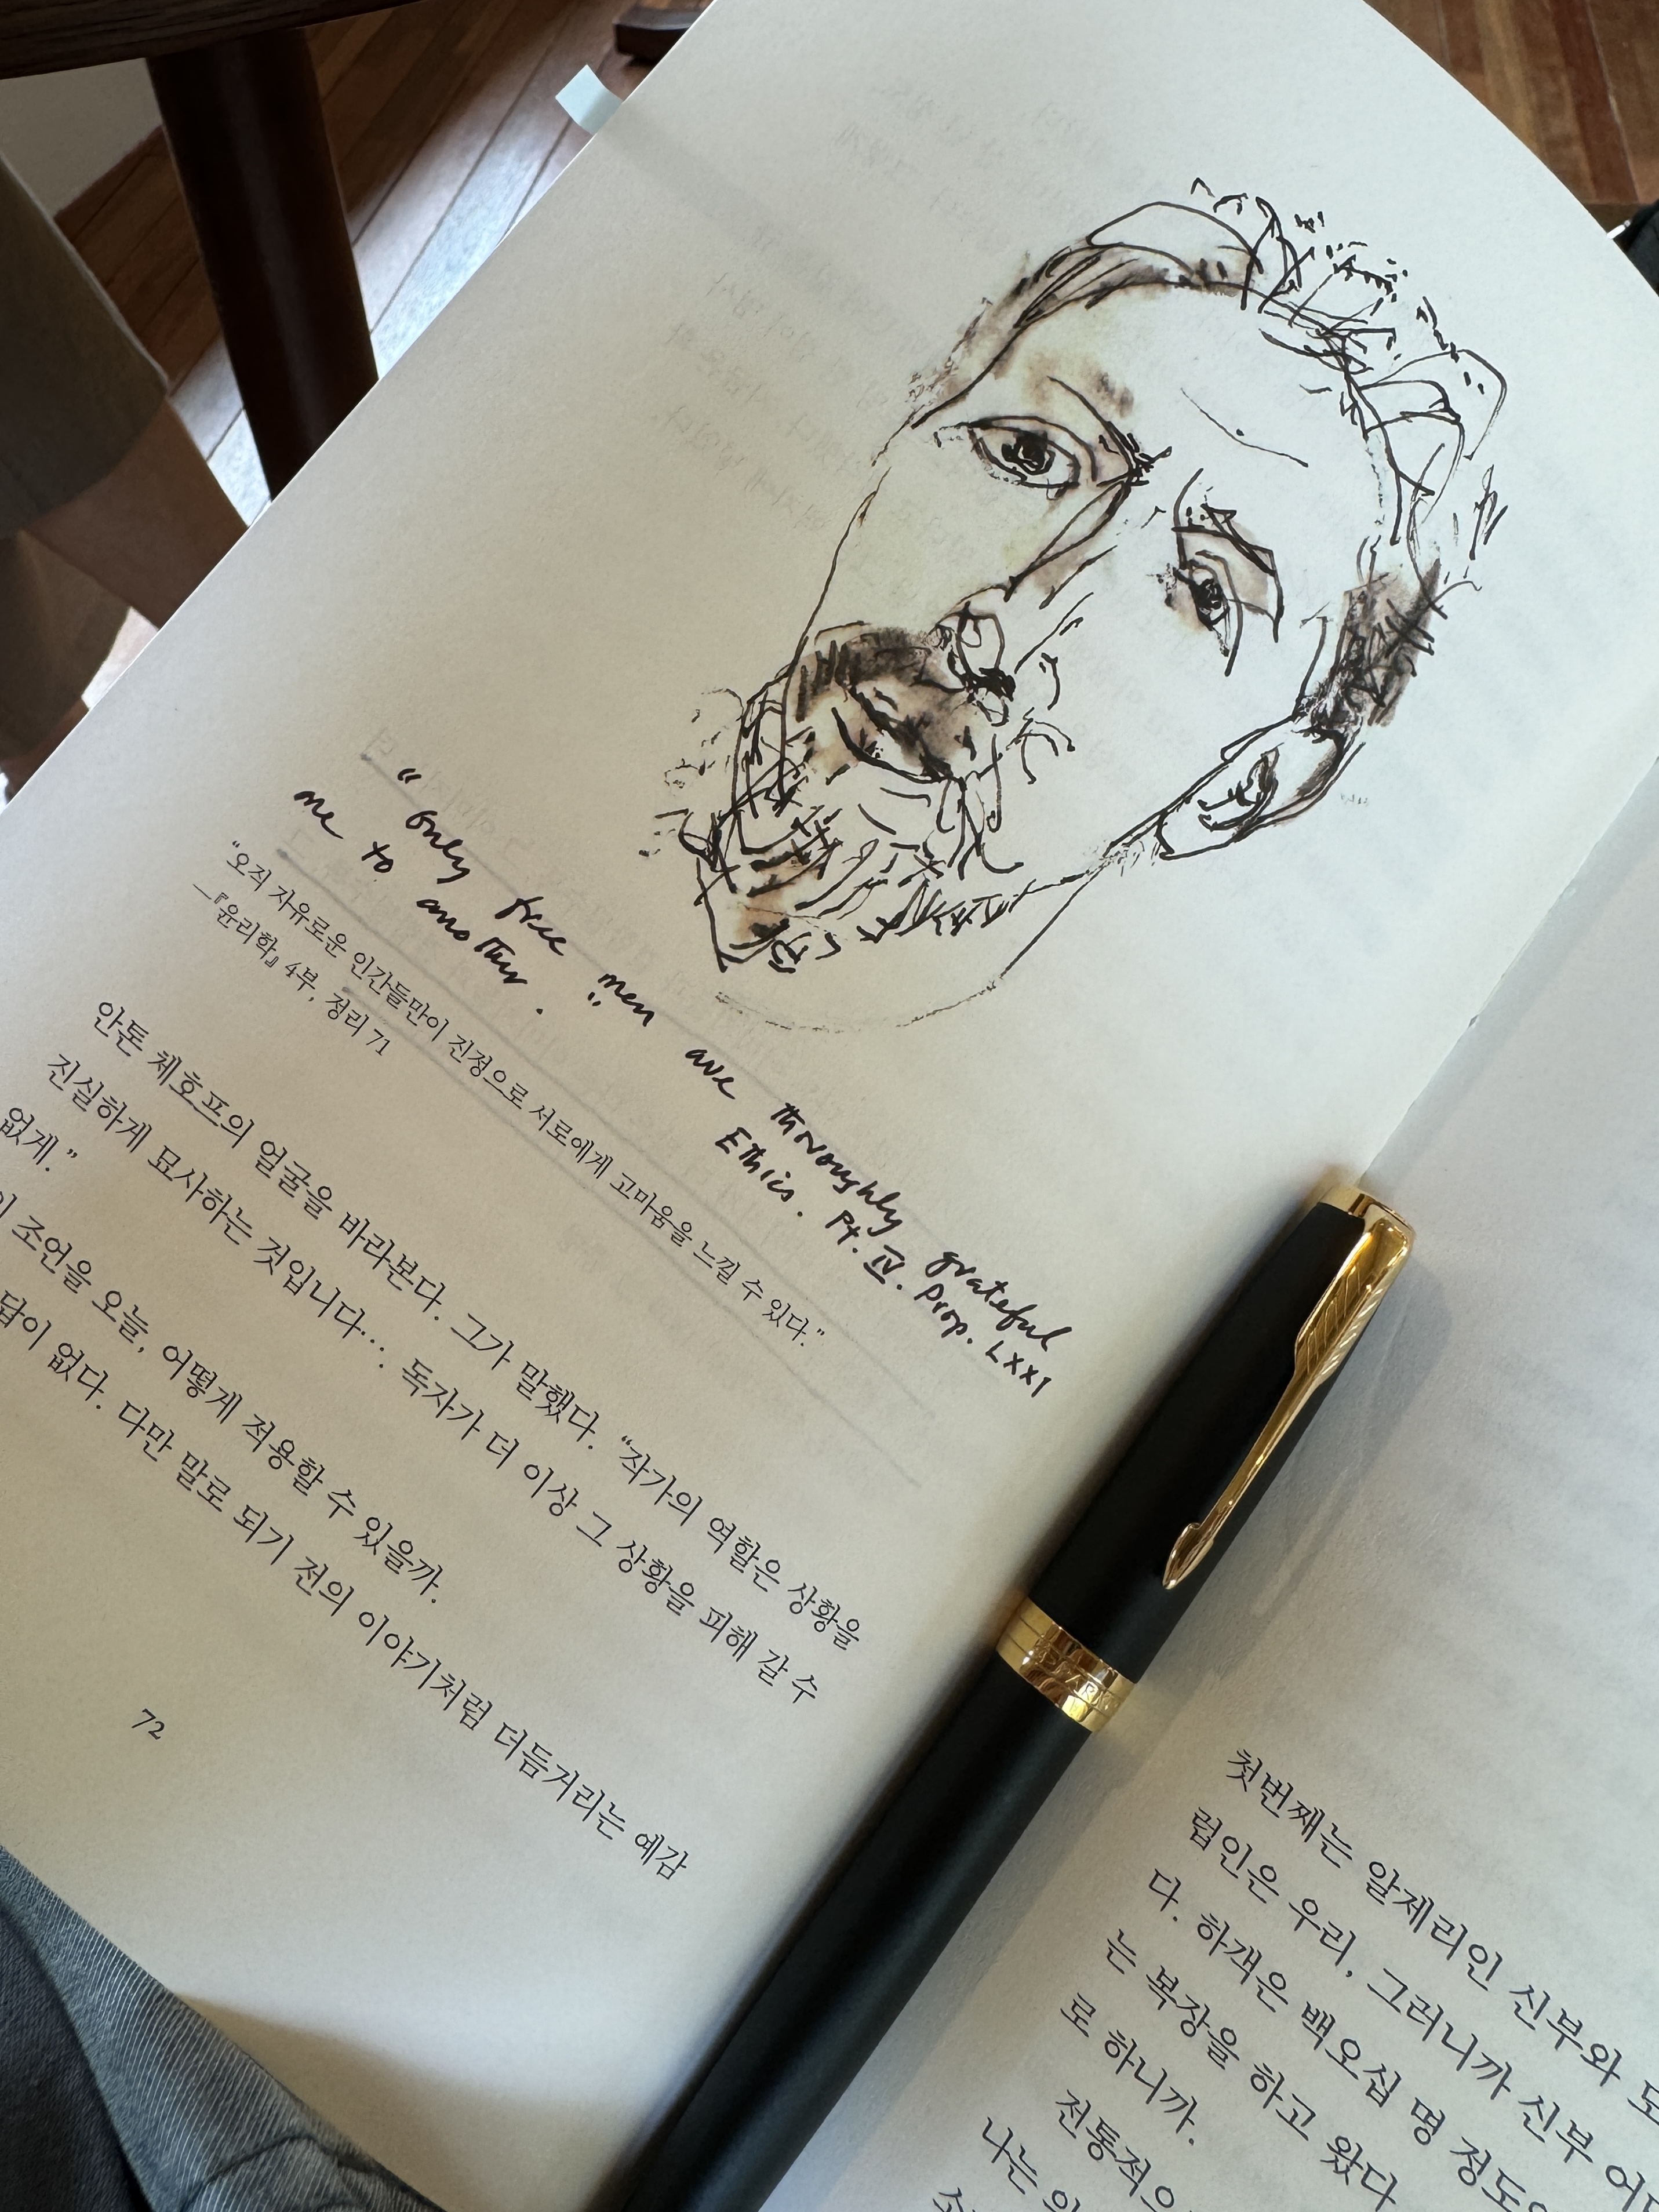 “only free men are throughly grateful
one to another.” Ethics. Pt. IV. Prop. LXXI
“오직 자유로운 인간들만이 진정으로 서로에게 고마움을 느낄 수 있다.”
—『윤리학』 4부, 정리 71
안톤 체호프의 얼굴을 바라본다. 그가 말했다. “작가의 역할은 상황을
진실하게 묘사하는 것입니다…. 독자가 더 이상 그 상황을 피해 갈 수
없게.”
조언을 오늘, 어떻게 적용할 수 있을까.
답이 없다. 다만 말로 되기 전의 이야기처럼 더듬거리는 예감
72
첫번째는 알제리인 신부와
럽인은 우리, 그러니까 신부
다. 하객은 백오십 명
는 복장을 하고 왔다
로 하니까.
전통적
나는
PARKER